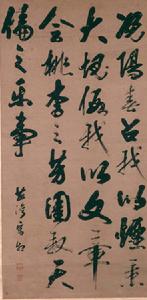 況陽春召我以煙景
大塊假我以文章
會桃李之芳園敘天
倫之樂事